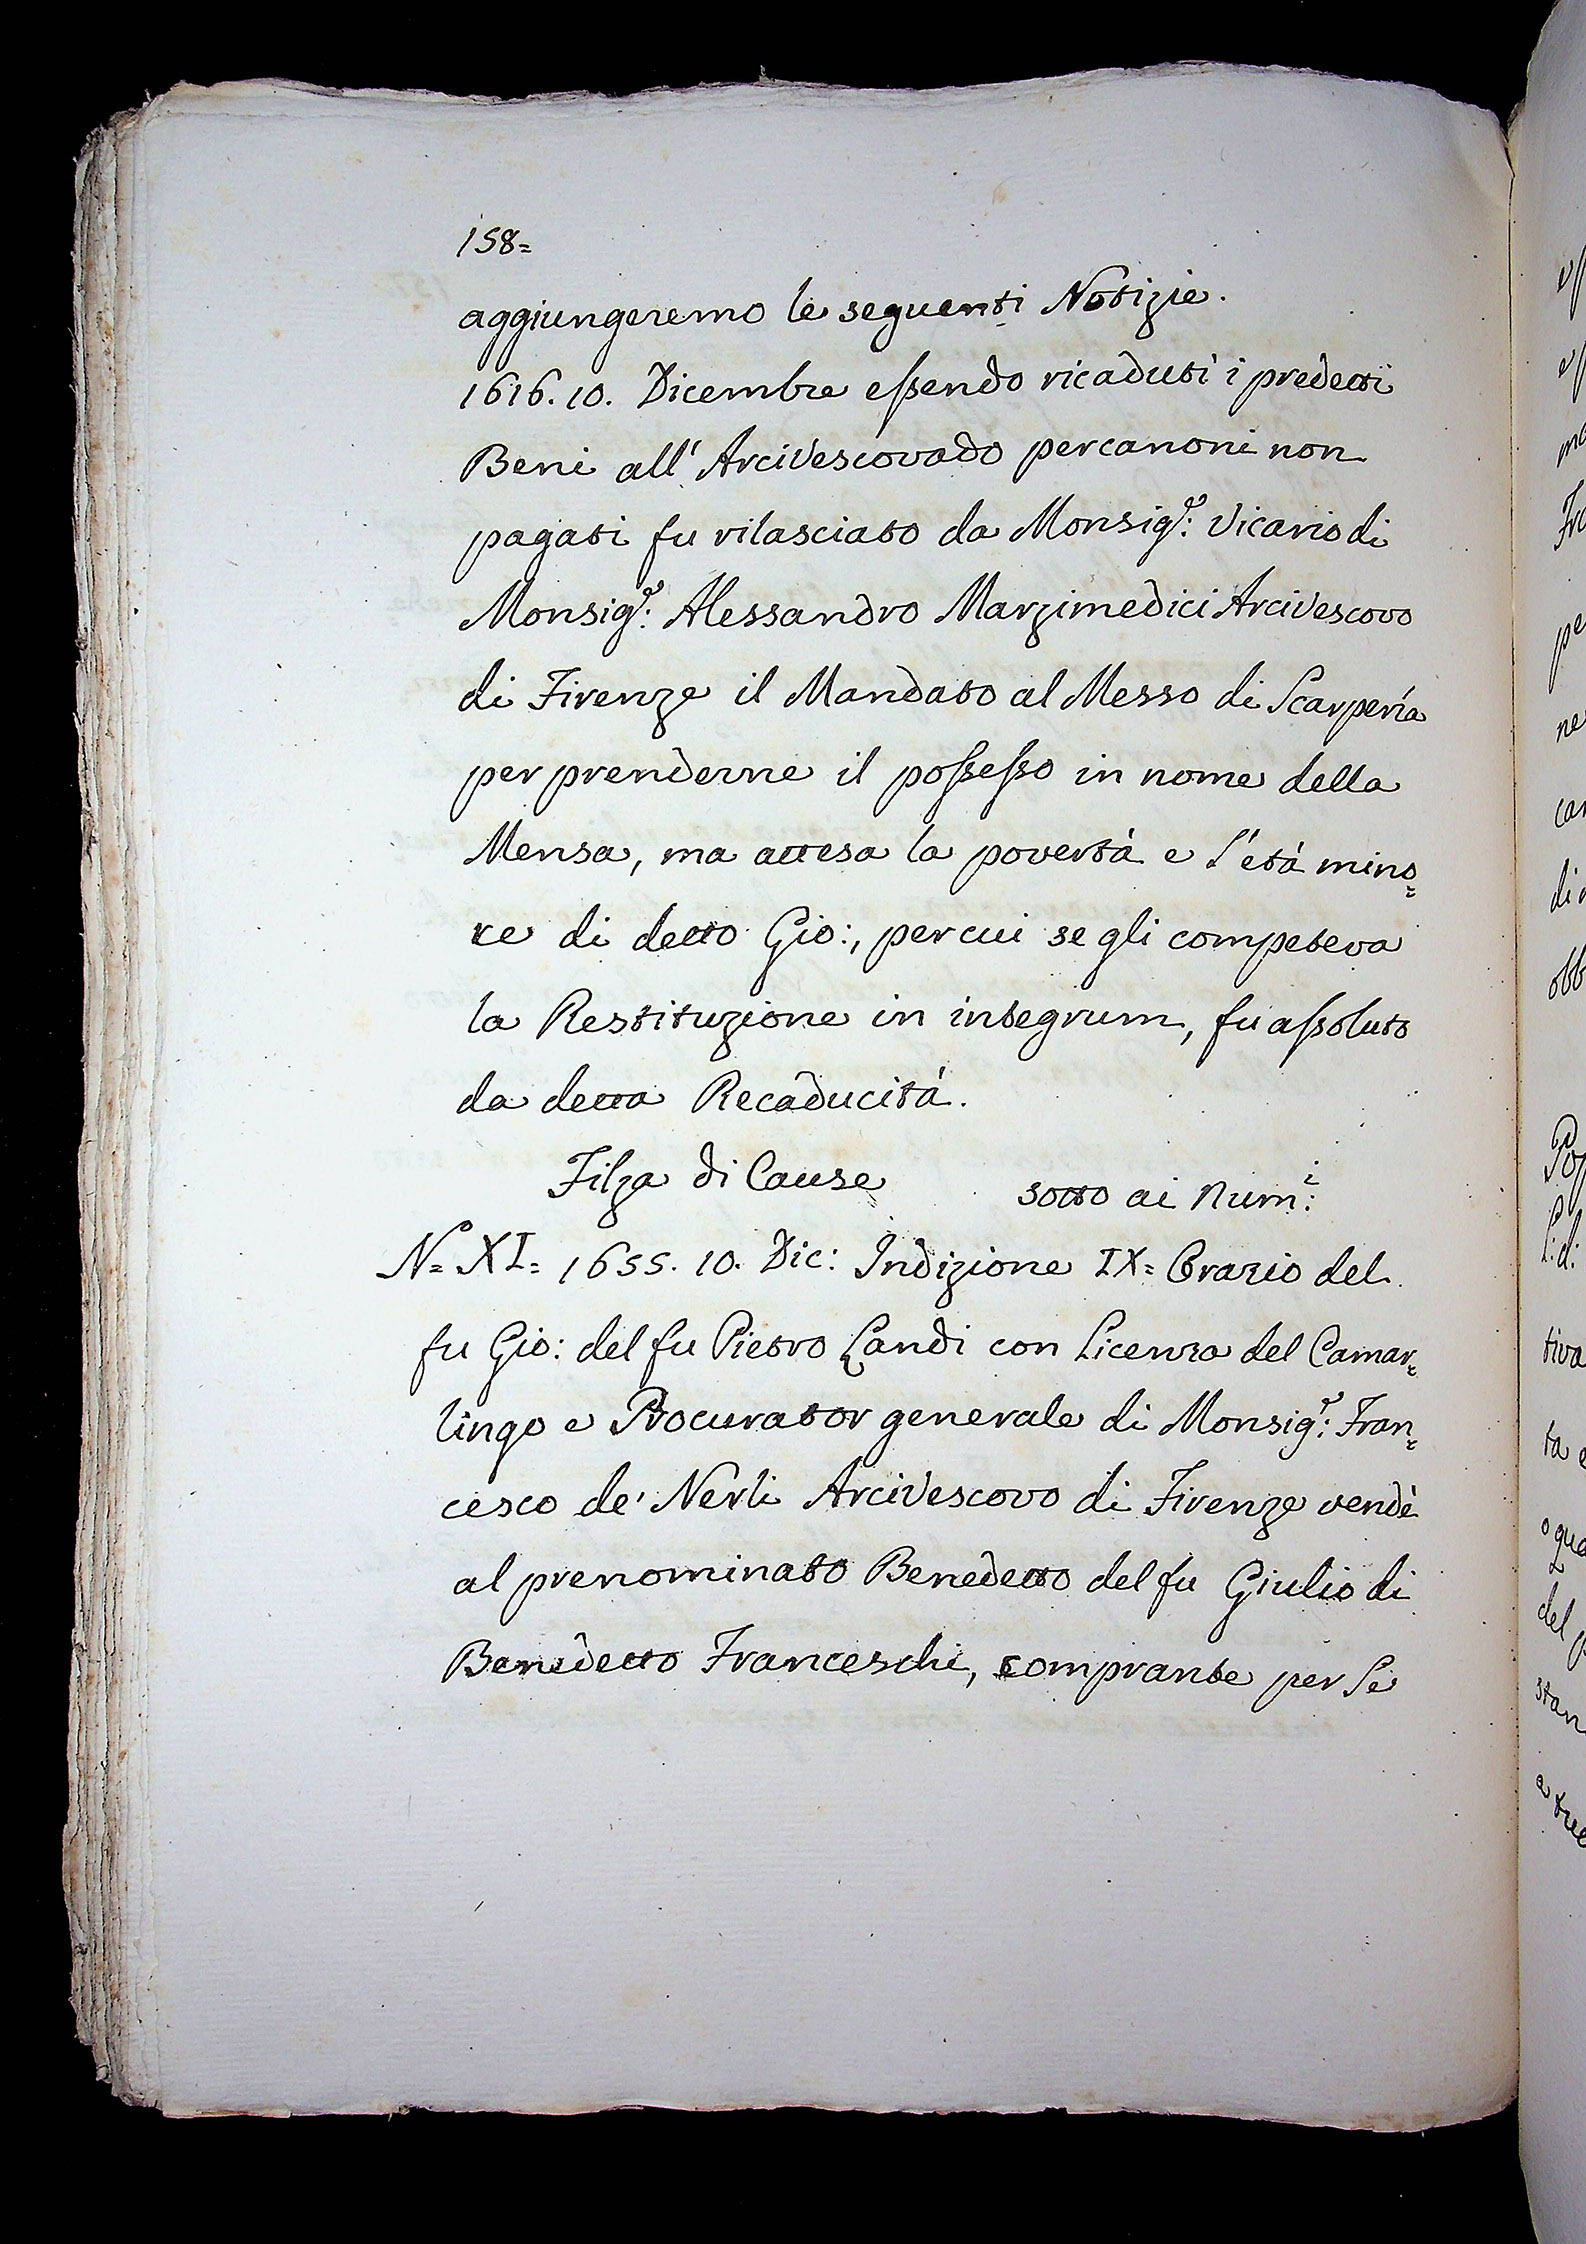 158=
aggiungeremo le seguenti Notizie.
1616. 10. Dicembre essendo ricaduti i predetti
Beni all' Arcivescovado per canoni non
pagati fu rilasciato da Monsig.r: Vicario di
Monsig.r: Alessandro Marzimedici Arcivescovo
di Firenze il Mandato al Messo di Scarperia
per prenderne il possesso in nome della
Mensa, ma attesa la povertà e l'età mino=
re di detto Gio:, per cui se gli competeva
la Restituzione in integrum, fu assoluto
da detta Recaducità.
Filza di Cause sotto ai Num.i:
N.o= XI= 1655. 10. Dic: Indizione IX= Orazio del
fu Gio: del fu Pietro Landi con Licenza del Camar=
lingo e Procurator generale di Monsig.r: Fran=
cesco de' Nerli Arcivescovo di Firenze vendè
al prenominato Benedetto del fu Giulio di
Benedetto Franceschi, comprante per Se